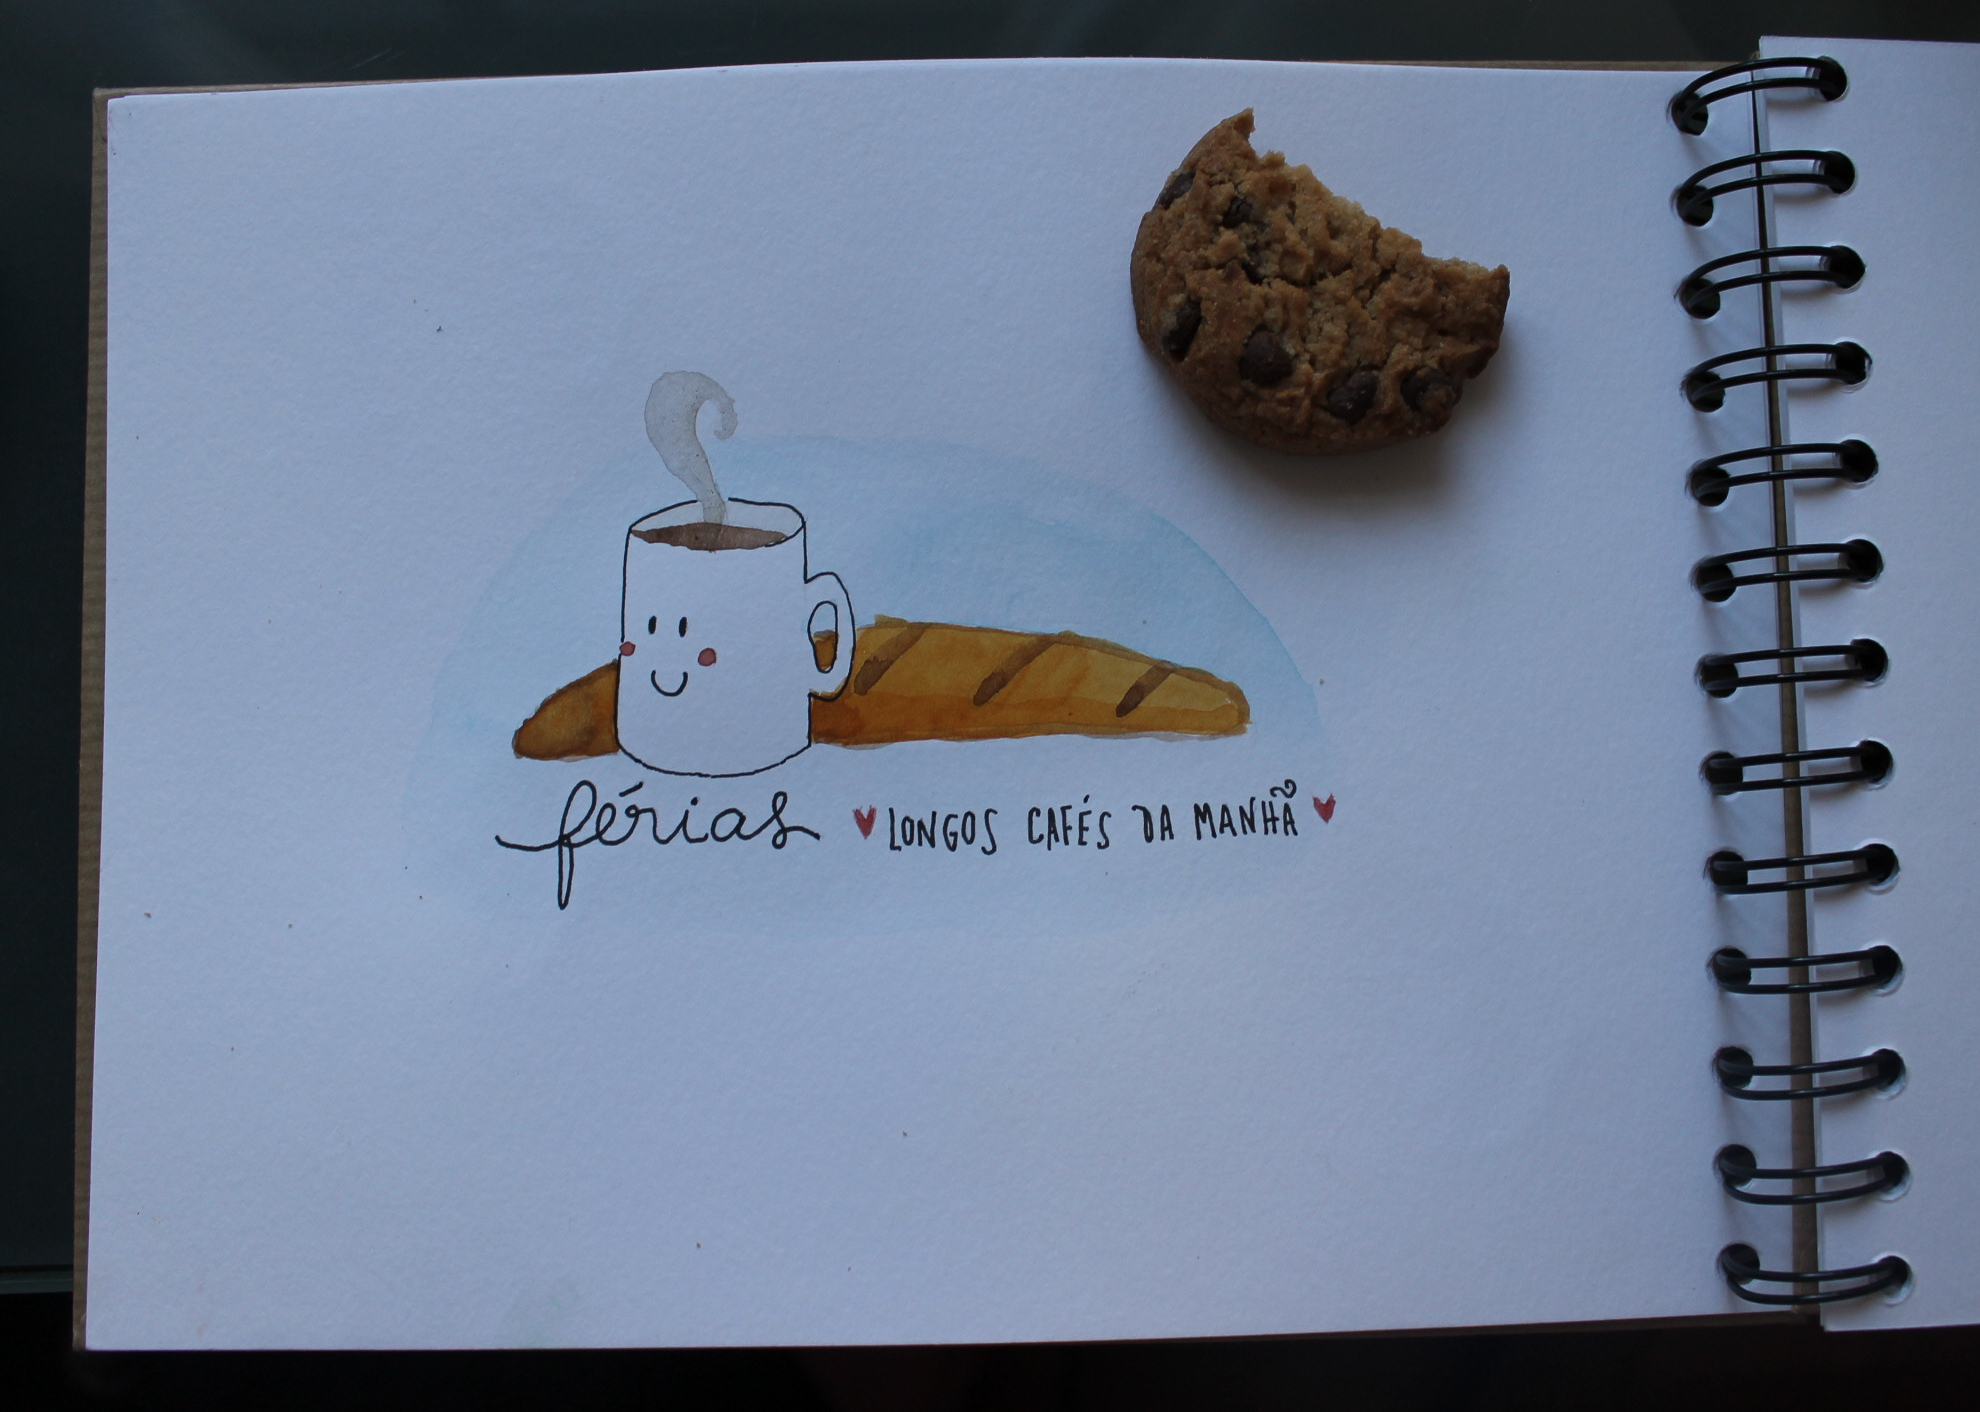 férias ♥ LONGOS CAFÉS DA MANHÃ ♥